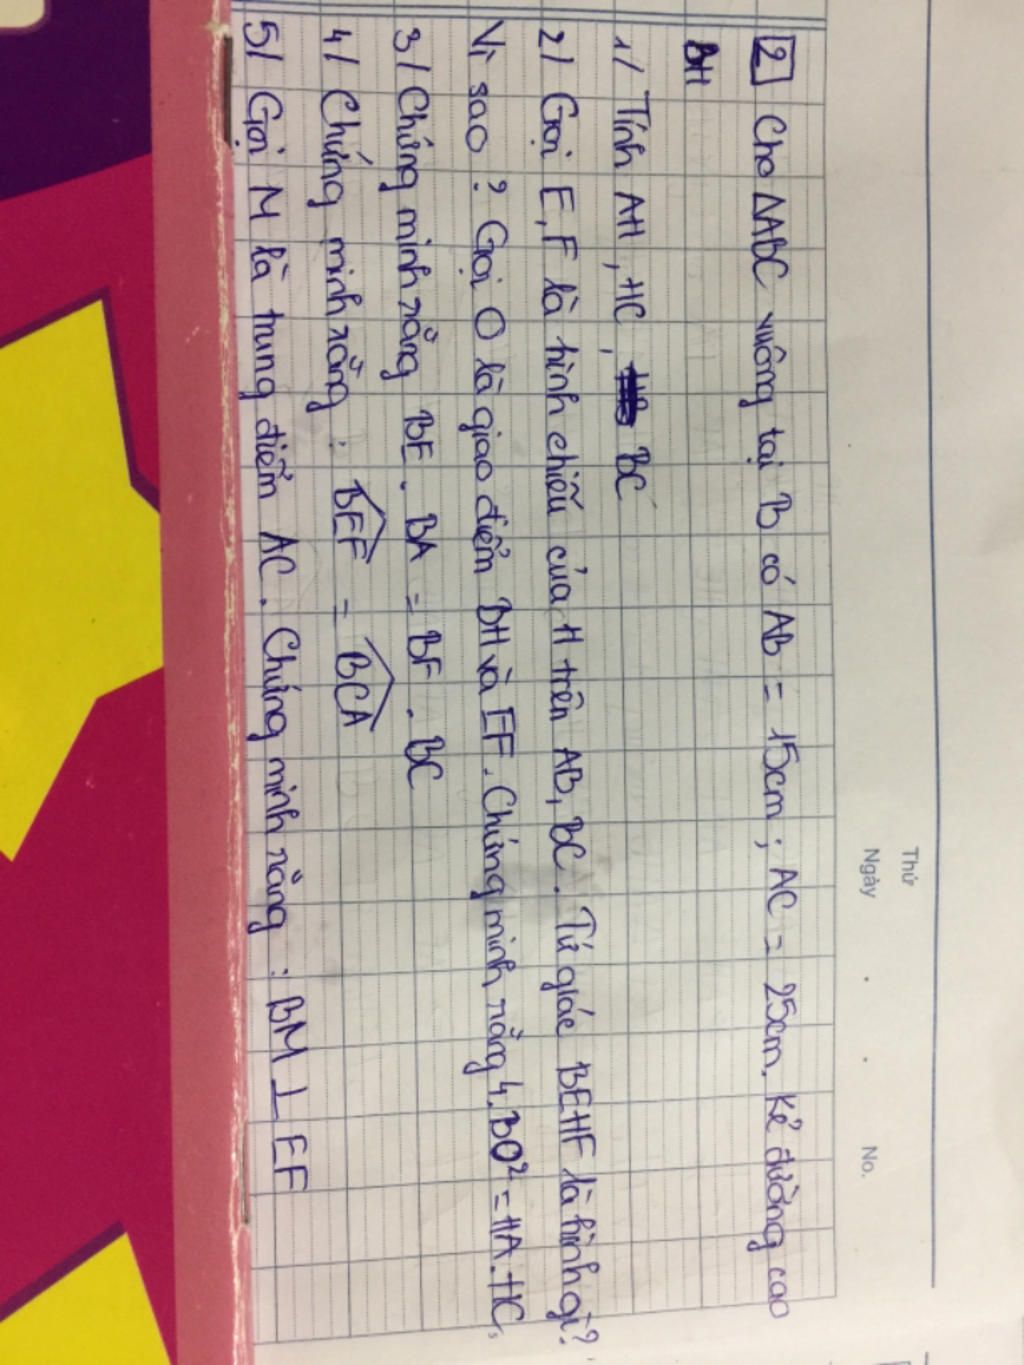 Thứ
Ngày . . No.
2 Cho ΔABC vuông tại B có AB = 15cm ; AC = 25cm. Kẻ đường cao
BH
1/ Tính AH, HC, BC
2/ Gọi E, F là hình chiếu của H trên AB, BC. Tứ giác BEHF là hình gì?
Vì sao ? Gọi O là giao điểm BH và EF. Chứng minh rằng 4.BO² = HA.HC.
3/ Chứng minh rằng BE . BA = BF . BC
4/ Chứng minh rằng : \widehat{BEF} = \widehat{BCA}
5/ Gọi M là trung điểm AC. Chứng minh rằng : BM ⊥ EF